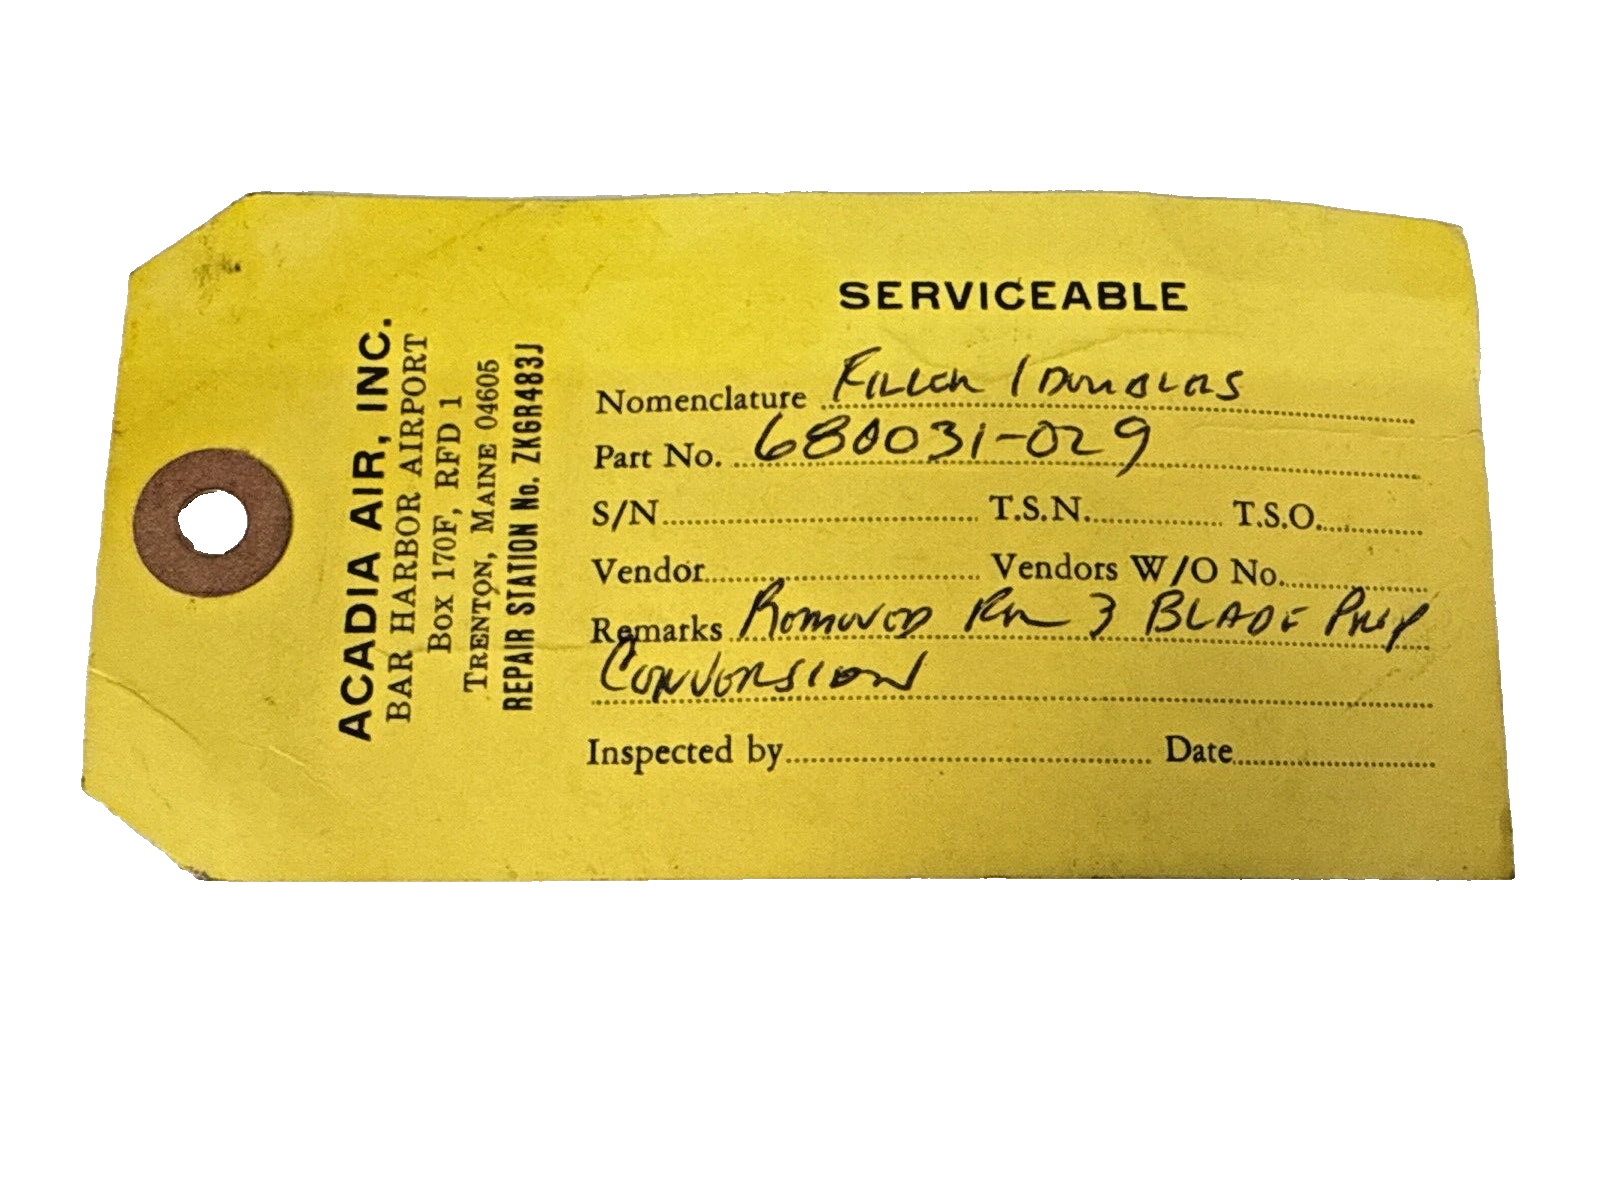 ACADIA AIR, INC.
BAR HARBOR AIRPORT
Box 170F, RFD 1
TRENTON, MAINE 04605
REPAIR STATION No. ZKGR483J
SERVICEABLE
Nomenclature FILLER /
Part No. 680031-029
S/N T.S.N. T.S.O.
Vendor Vendors W/O No.
Remarks REMOVED For 3 BLADE PROP
CONVERSION
Inspected by Date